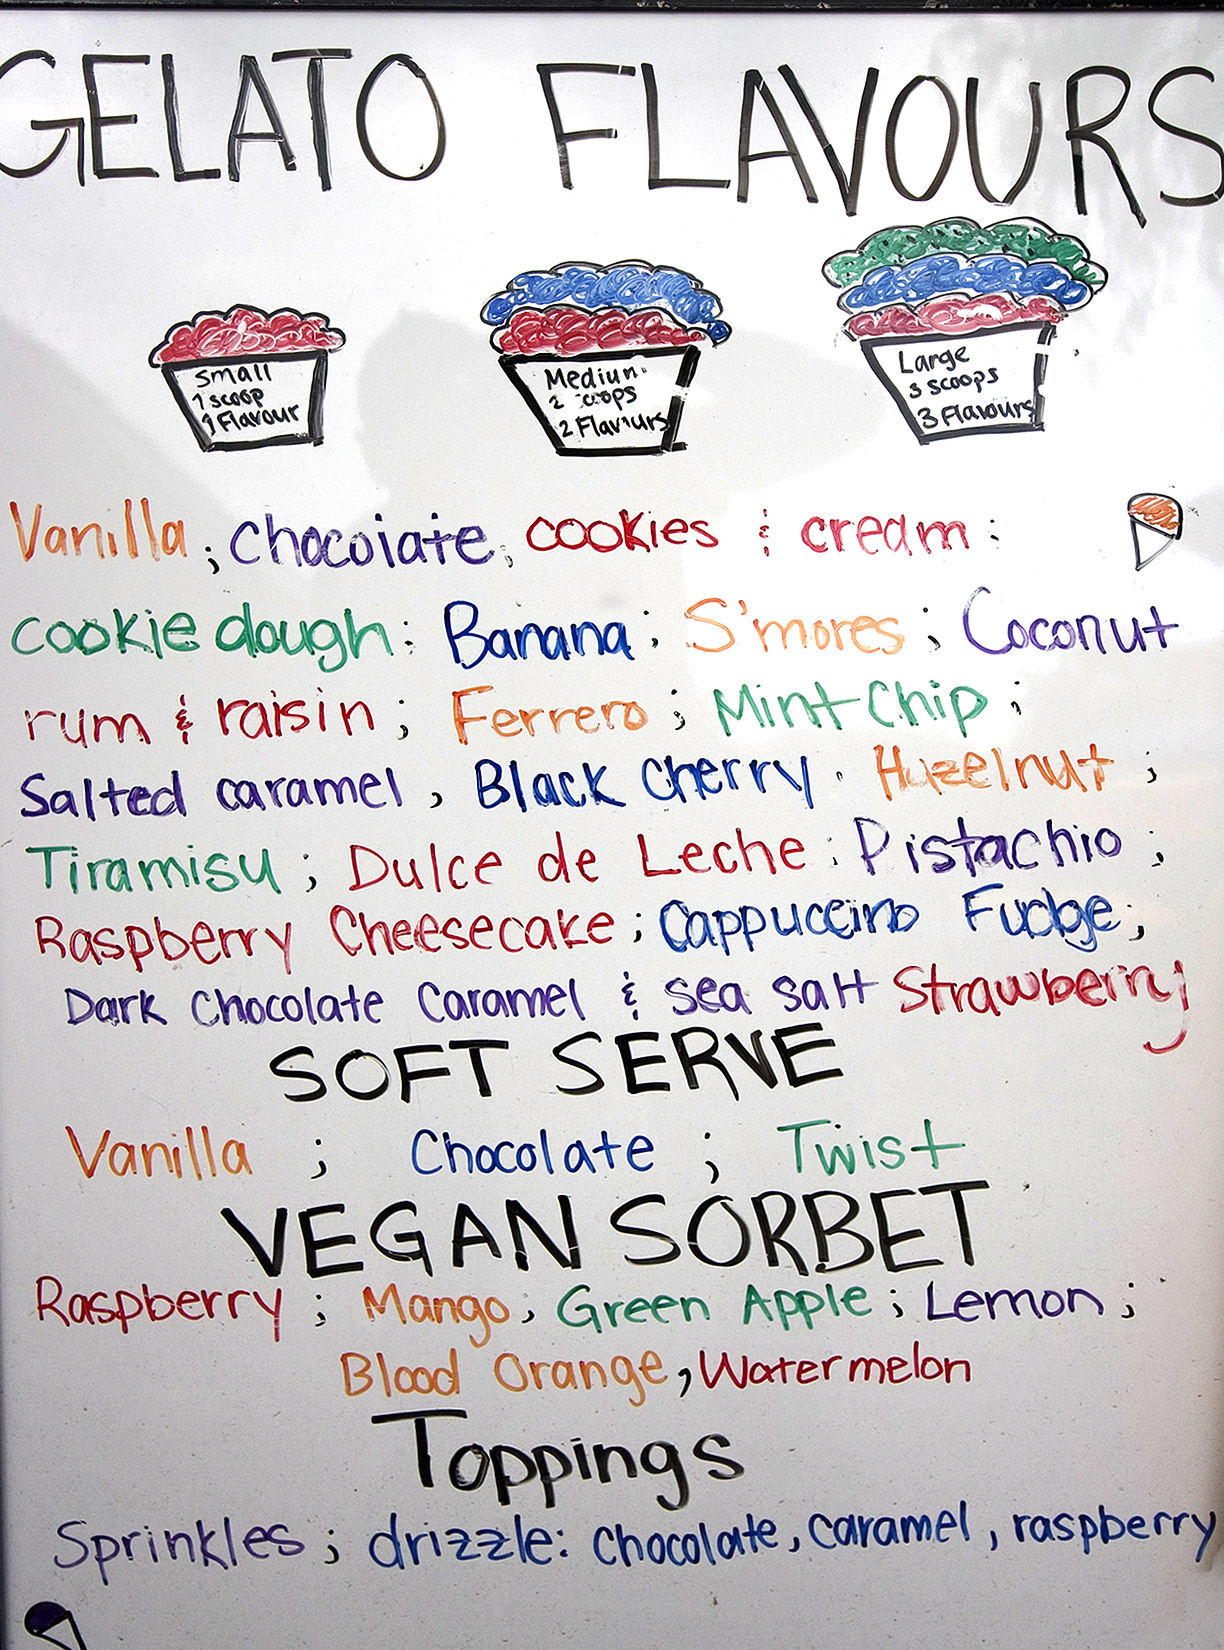 GELATO FLAVOURS
small
1 scoop
1 Flavour
Medium
2 scoops
2 Flavours
Large
3 scoops
3 Flavours
Vanilla ; chocolate ; cookies & cream ;
cookie dough ; Banana ; S'mores ; Coconut
rum & raisin ; Ferrero ; Mint Chip ;
Salted caramel , Black Cherry . Hazelnut ;
Tiramisu ; Dulce de Leche ; Pistachio ;
Raspberry Cheesecake ; Cappuccino Fudge ;
Dark Chocolate Caramel & sea salt Strawberry
SOFT SERVE
Vanilla ; Chocolate ; Twist
VEGAN SORBET
Raspberry ; Mango ; Green Apple ; Lemon ;
Blood Orange , Watermelon
Toppings
Sprinkles ; drizzle: chocolate, caramel, raspberry